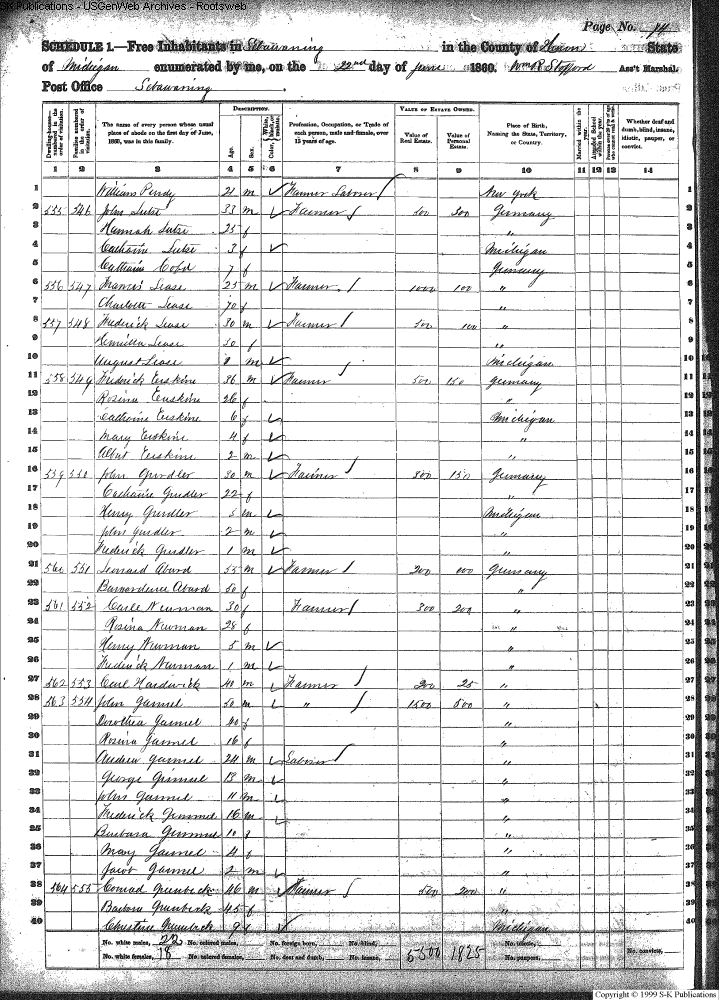 S-K Publications - USGenWeb Archives - Rootsweb
Page No. 74
SCHEDULE 1.—Free Inhabitants in Sebawaing in the County of Huron State
of Michigan enumerated by me, on the 22nd day of June 1860. Wm R Stafford Ass't Marshal.
Post Office Sebawaing.
Dwelling-houses numbered in the order of visitation.
Families numbered in the order of visitation.
The name of every person whose usual place of abode on the first day of June, 1860, was in this family.
DESCRIPTION.
Age.
Sex.
Color, White, black, or mulatto.
Profession, Occupation, or Trade of each person, male and female, over 15 years of age.
VALUE OF ESTATE OWNED.
Value of Real Estate.
Value of Personal Estate.
Place of Birth, Naming the State, Territory, or Country.
Married within the year.
Attended School within the year.
Whether deaf and dumb, blind, insane, idiotic, pauper, or convict.
1 2 3 4 5 6 7 8 9 10 11 12 13 14
1 William Purdy 21 m Farmer Laborer New York 1
2 555 546 John 33 m Farmer 500 300 Germany 2
3 Hannah 25 f " 3
4 Catharine 3 f Michigan 4
5 Catharine 7 f Germany 5
6 556 547 Francis Lease 25 m Farmer 1000 100 " 6
7 Charlotte Lease 70 f " 7
8 557 548 Frederick Lease 30 m Farmer 500 100 " 8
9 Lease 30 f " 9
10 August Lease m Michigan 10
11 558 549 Frederick Erskine 36 m Farmer 500 150 Germany 11
12 Rosina Erskine 26 f " 12
13 Catharine Erskine 6 f Michigan 13
14 Mary Erskine 4 f " 14
15 Albert Erskine 2 m " 15
16 559 550 John Grudler 30 m Farmer 800 150 Germany 16
17 Catharine Grudler 22 f " 17
18 Henry Grudler 5 m Michigan 18
19 John Grudler 2 m " 19
20 Frederick Grudler 1 m " 20
21 560 551 Leonard Abard 55 m Farmer 200 Germany 21
22 Abard 50 f " 22
23 561 552 Carle Newman 30 f Farmer 300 200 " 23
24 Rosina Newman 28 f " 24
25 Henry Newman 5 m " 25
26 Frederick Newman 1 m " 26
27 562 553 Carl Hardwick 40 m Farmer 200 25 " 27
28 563 554 John Gamel 50 m " 1500 500 " 28
29 Dorothea Gamel 40 f " 29
30 Rosina Gamel 16 f " 30
31 Andrew Gamel 24 m Laborer " 31
32 George Gammel 13 m " 32
33 John Gammel 11 m " 33
34 Frederick Gammel 16 m " 34
35 Barbara Gammel 10 f " 35
36 Mary Gamel 4 f " 36
37 Jacob Gamel 2 m " 37
38 564 555 Conrad Grunbeck 46 m Farmer 500 200 " 38
39 Barbara Grunbeck 45 f " 39
40 Christine Grunbeck 9 f Michigan 40
No. white males, 22 No. colored males, No. foreign born, No. blind, 5500 1825 No. idiotic,
No. white females, 18 No. colored females, No. deaf and dumb, No. insane, No. paupers, No. convicts,
Copyright © 1999 S-K Publications